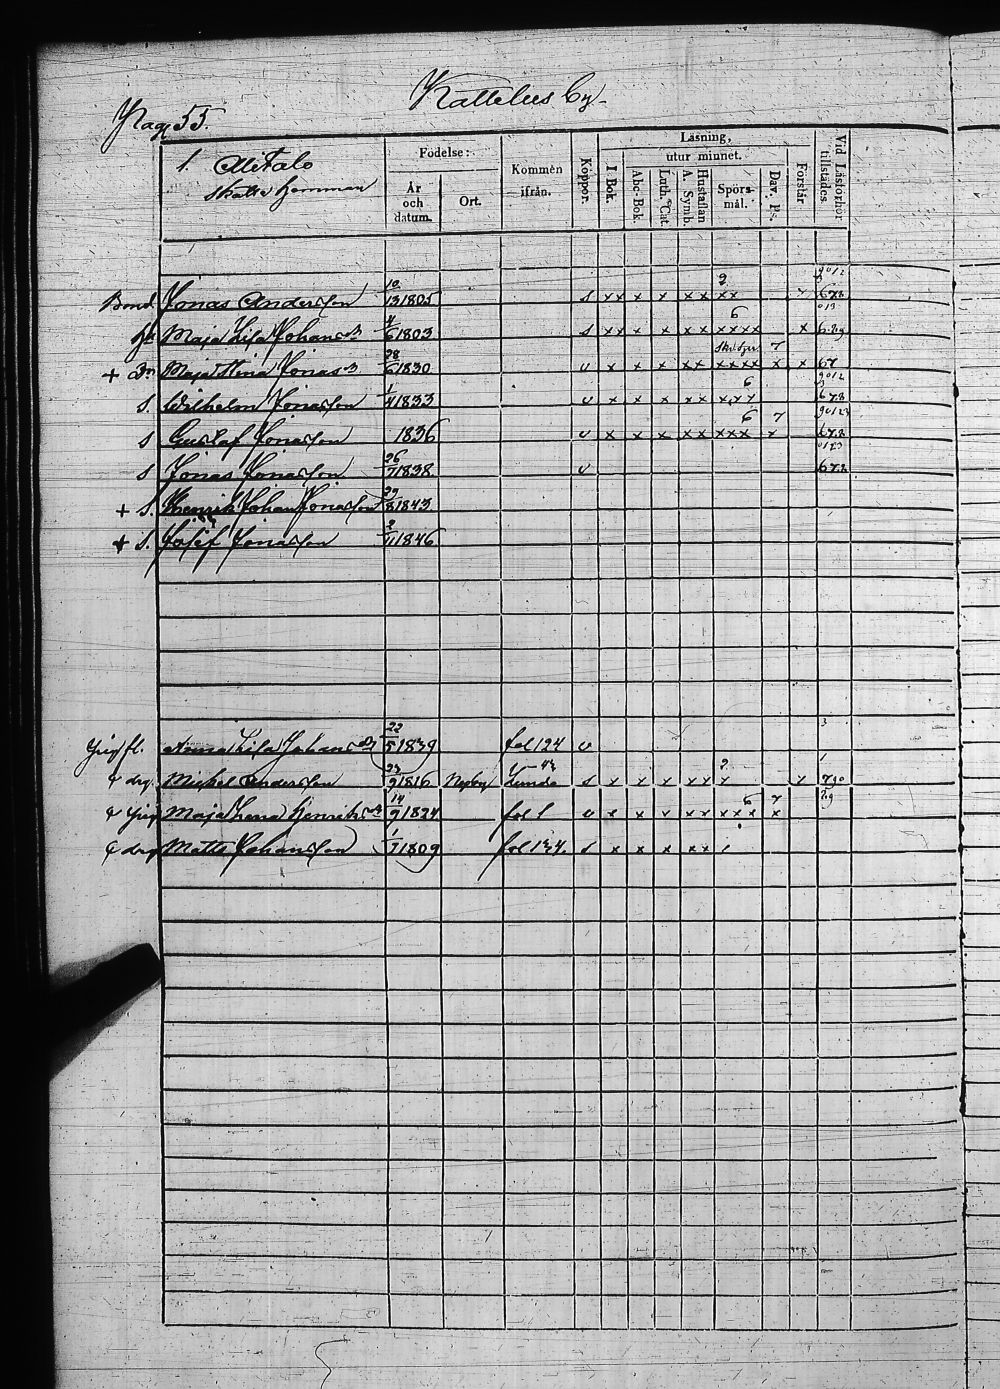 Kattelus by
Pag 55.
1. Alitalo
Skatte hemman
Födelse:
År och datum.
Ort.
Kommen ifrån.
Koppor.
Läsning,
utur minnet.
I Bok.
Abc-Bok.
Luth. Cat.
Hustaflan A. Symb.
Spörs-mål.
Dav. Ps.
Förstår
Vid Läsförhör tillstädes.
Bond. Jonas Andersson 10/12 1805 s xx x x xx xx 2 x 678
h. Maja Lisa Johansd 4/6 1803 s xx x x xx xxxx 6 x 6.89
+ Dr Maja Stina Jonasd 28/6 1830 v x x x xx xxxx 7 x x 67
S. Wilhelm Jonasson 1/4 1833 v x x x xx xxx 6 678
S Gustaf Jonasson 1836 v x x x xx xxx 6 7 x 678
S Jonas Jonasson 26/7 1838 v 678
+ S. Henrik Johan Jonasson 29/8 1843
+ S. Josef Jonasson 2/11 1846
Pig fl. Anna Lisa Johansd 22/5 1839 fol 124 v
drg. Michel Andersson 23/9 1816 Nykby Lunda 43 s x x x xx x 2 x 790
Pig Maja Lena Henriksd 14/9 1824 fol 1 v x x x xx xxxx 6 7 x 89
drg Matts Johansson 1/7 1809 fol 134. s x x x xx /